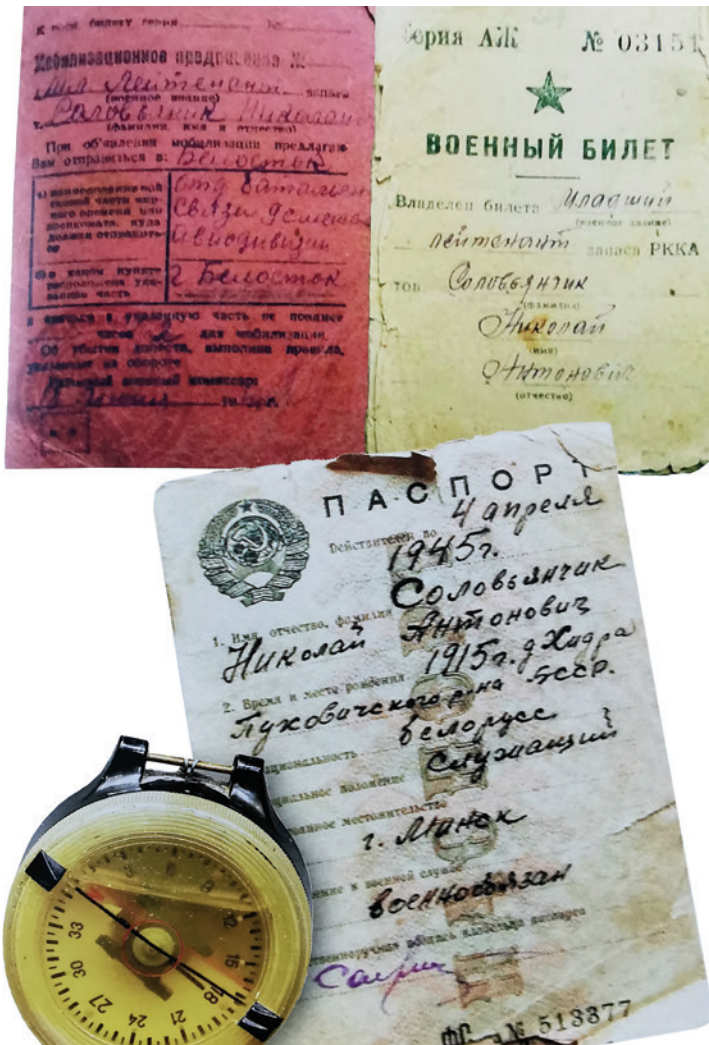 К воен. билету серия № 
Мобилизационное предписание №
Мл Лейтенант запаса
(военное звание)
т. Соловьянчик Николай
(фамилия, имя и отчество)
При объявлении мобилизации предлагаю
Вам отправиться в: Белосток
а) наименование вой
сковой части мир
ного времени или
военкомата, куда
должен отправить
ся
отд батальон
связи 9 смеша
авиодивизии
б) в каком пункте
расположена ука
занная часть
г Белосток
и явиться в указанную часть не позднее
часов 2 для мобилизации.
Об убытии известь, выполнив правила,
указанные на обороте
Районный военный комиссар
Серия АЖ № 03151
ВОЕННЫЙ БИЛЕТ
Владелец билета Младший
(военное звание)
лейтенант запаса РККА
тов Соловьянчик
(фамилия)
Николай
(имя)
Антонович
(отчество)
ПАСПОРТ
Действителен по 4 апреля
1945г.
Соловьянчик
1. Имя, отчество, фамилия
Николай Антонович
2. Время и место рождения 1915г. д Хидра
Пуховичского р-на БССР.
циональность белорусс
циальное положение служащий
оянное местожительство
г. Минск
ение к военной службе
военнообязан
ственноручная подпись владельца паспорта
ФС № 513377
33
30
27
24
21
18
15
12